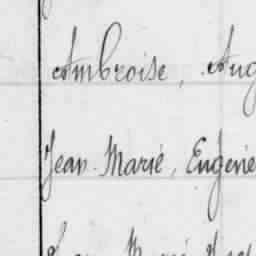 Ambroise, Aug
Jean Marie, Eugene